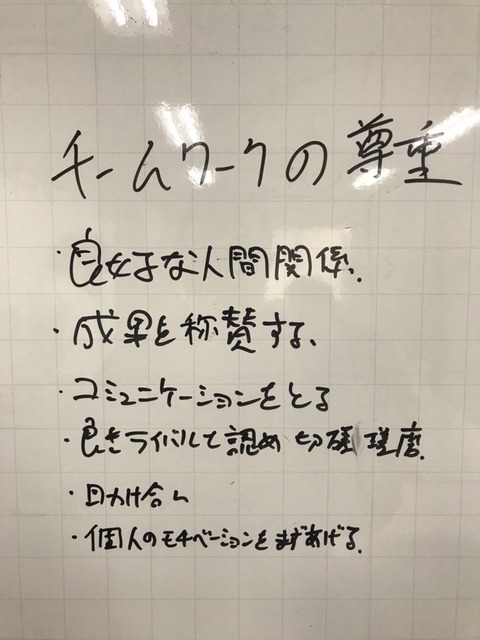 チームワークの尊重
・良好な人間関係.
・成果を称賛する、
・コミュニケーションをとる
・良きライバルして認め 切磋琢磨.
・助け合い
・個人のモチベーションをまずあげる.